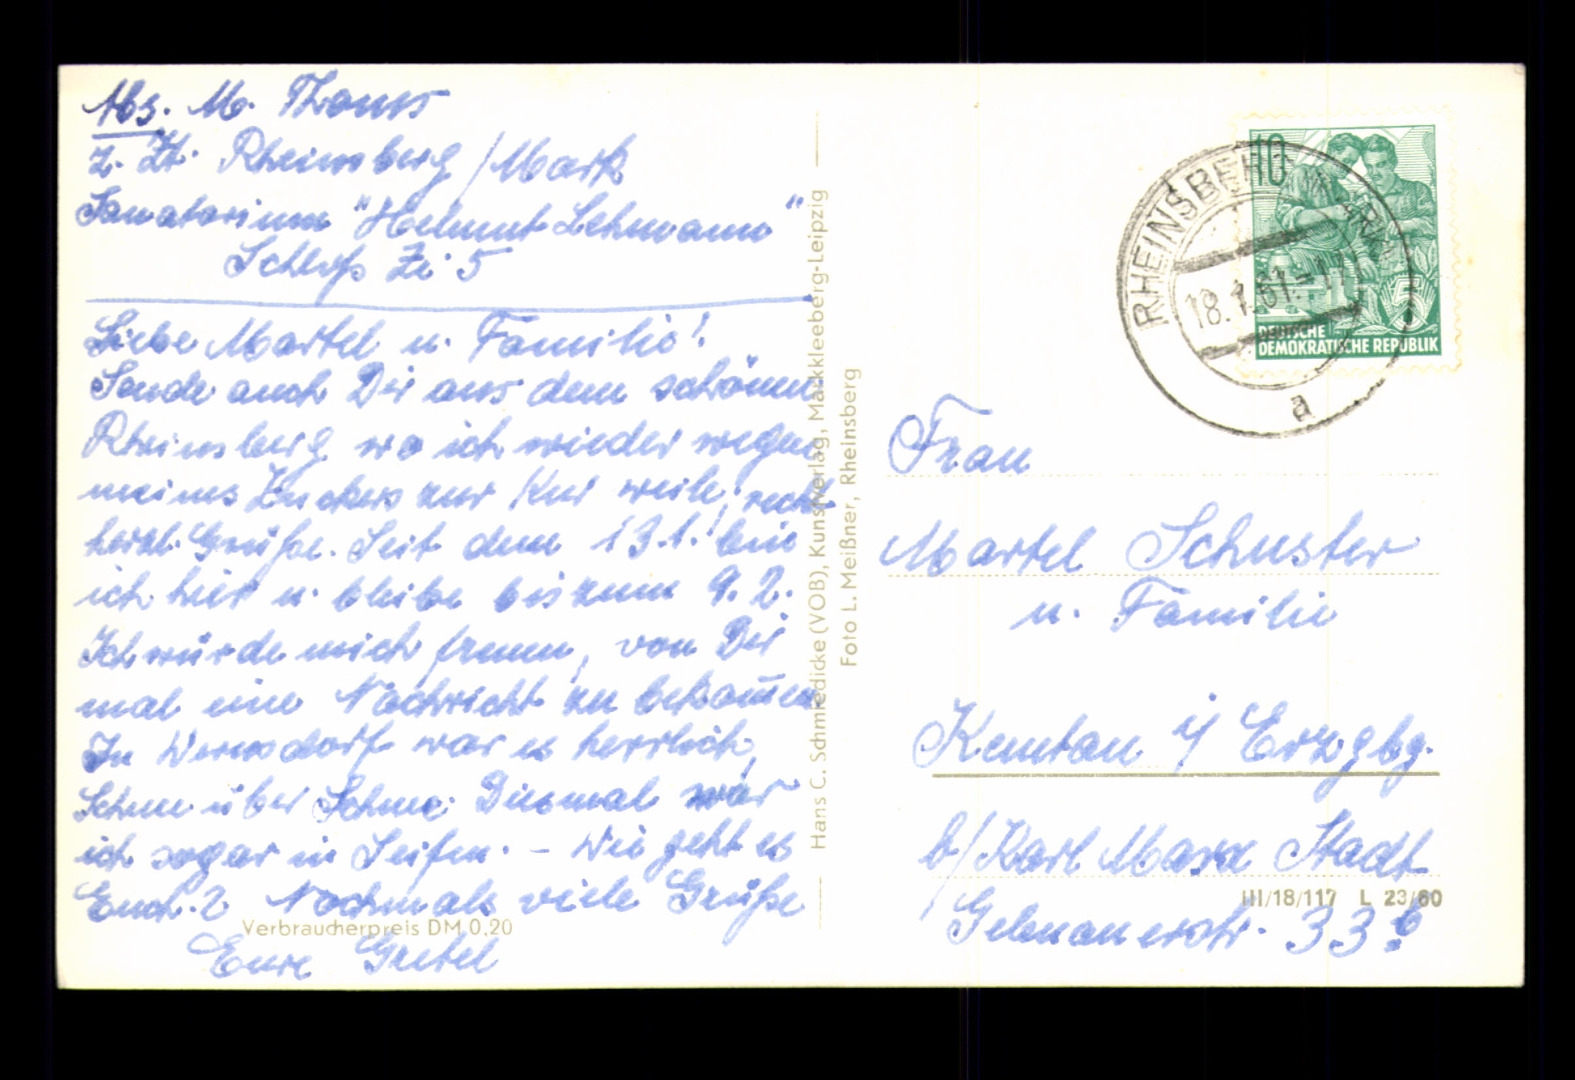 Abs. M. Thoms
z. Zt. Rheinsberg / Mark
Sanatorium "Helmut Lehmann"
Schloß Zi 5
Liebe Martel u. Familie!
Sende auch Dir aus dem schönen
Rheinsberg wo ich wieder wegen
meines Zuckers zur Kur weile, recht
herzl. Grüße. Seit dem 13.1. bin
ich hier u. bleibe bis zum 9.2.
Ich würde mich freuen, von Dir
mal eine Nachricht zu bekommen
In war es herrlich,
Schnee über Schnee. Diesmal war
ich sogar in Seifen. – Wie geht es
Euch? Nochmals viele Grüße
Eure Gretel
Verbraucherpreis DM 0,20
Hans C. Schmiedicke (VOB), Kunstverlag, Markkleeberg-Leipzig
Foto L. Meißner, Rheinsberg
RHEINSBERG (MARK)
18.1.61.-17
a
10
5
DEUTSCHE
DEMOKRATISCHE REPUBLIK
Frau
Martel Schuster
u. Familie
Kemtau i/ Erzgbg.
b/ Karl Marx Stadt
III/18/117 L 23/60
33 b